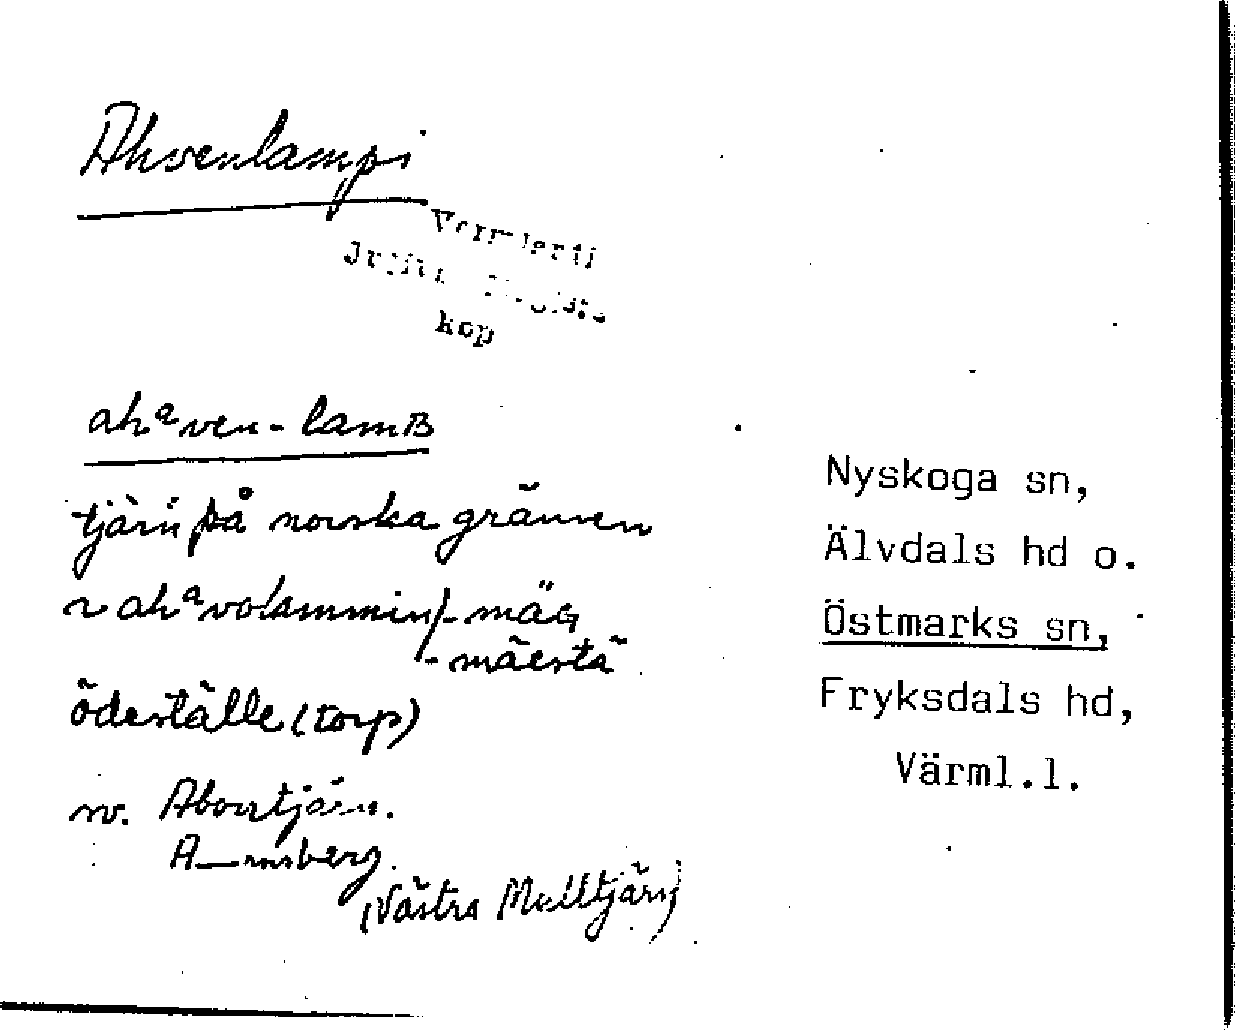 Ahvenlampi
kop
ahᵃven-lamB
tjärn på norska gränsen
~ ahᵃvolammin/-mäG
-mäestä
ödeställe (torp)
sv. Aborrtjärn.
A—rnsberg.
(Västra Mulltjärn)
Nyskoga sn,
Älvdals hd o.
Östmarks sn,
Fryksdals hd,
Värml.l.